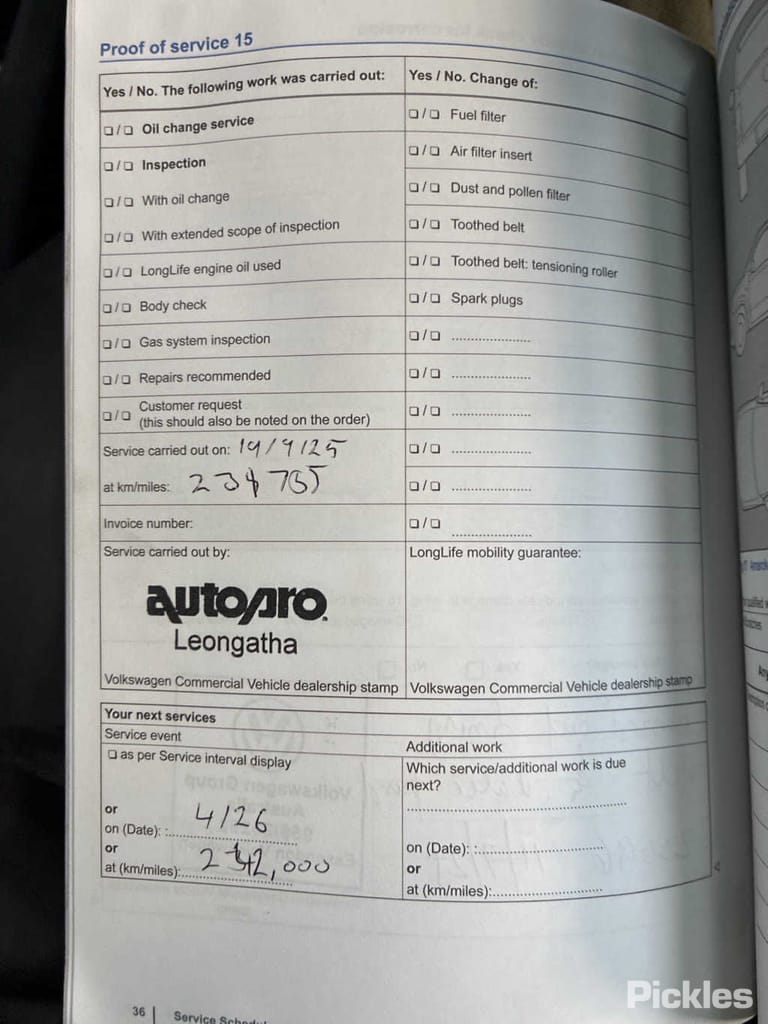 Proof of service 15
Yes / No. The following work was carried out:
❏ / ❏ Oil change service
❏ / ❏ Inspection
❏ / ❏ With oil change
❏ / ❏ With extended scope of inspection
❏ / ❏ LongLife engine oil used
❏ / ❏ Body check
❏ / ❏ Gas system inspection
❏ / ❏ Repairs recommended
❏ / ❏ Customer request
(this should also be noted on the order)
Service carried out on: 19/9/25
at km/miles:
Invoice number:
Service carried out by:
autopro.
Leongatha
Volkswagen Commercial Vehicle dealership stamp
Yes / No. Change of:
❏ / ❏ Fuel filter
❏ / ❏ Air filter insert
❏ / ❏ Dust and pollen filter
❏ / ❏ Toothed belt
❏ / ❏ Toothed belt: tensioning roller
❏ / ❏ Spark plugs
❏ / ❏ ........................
❏ / ❏ ........................
❏ / ❏ ........................
❏ / ❏ ........................
❏ / ❏ ........................
❏ / ❏ ........................
LongLife mobility guarantee:
Volkswagen Commercial Vehicle dealership stamp
Your next services
Service event
❏ as per Service interval display
or
on (Date): : 4/26
or
at (km/miles): 242,000
Additional work
Which service/additional work is due
next?
on (Date): :
or
at (km/miles):
36 | Service
Pickles